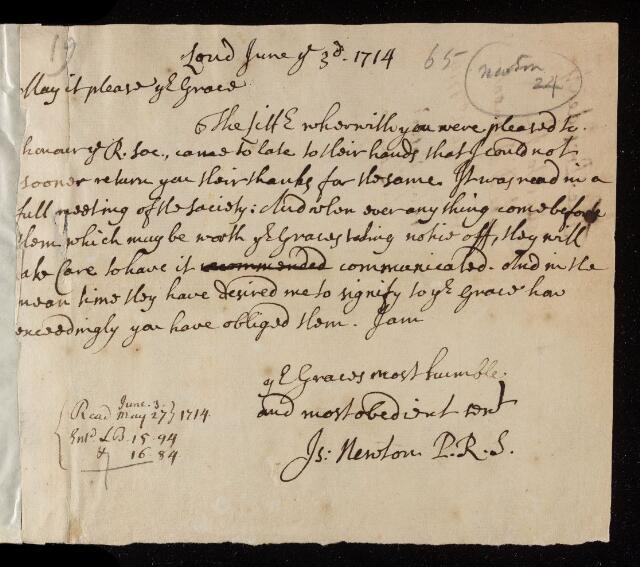 19
Lond June yᵉ 3ᵈ. 1714
65
Newton
24
May it please yʳ Grace
The wherwith you were pleased to
honour yᵉ R. Soc., came so late to their hands that I could not
sooner return you their thanks for the same. It was read in a
full meeting of the Society: And when ever any thing come before
them which may be worth yʳ Graces taking notice off, they will
take Care to have it recommended communicated. And in the
mean time they have desired me to signify to yʳ Grace how
exceedingly you have obliged them. I am
yʳ Graces most humble
and most obedient servᵗ
Is: Newton P.R.S.
June. 3.
Read May 27 } 1714
Entᵈ LB. 15. 94
& 16 84